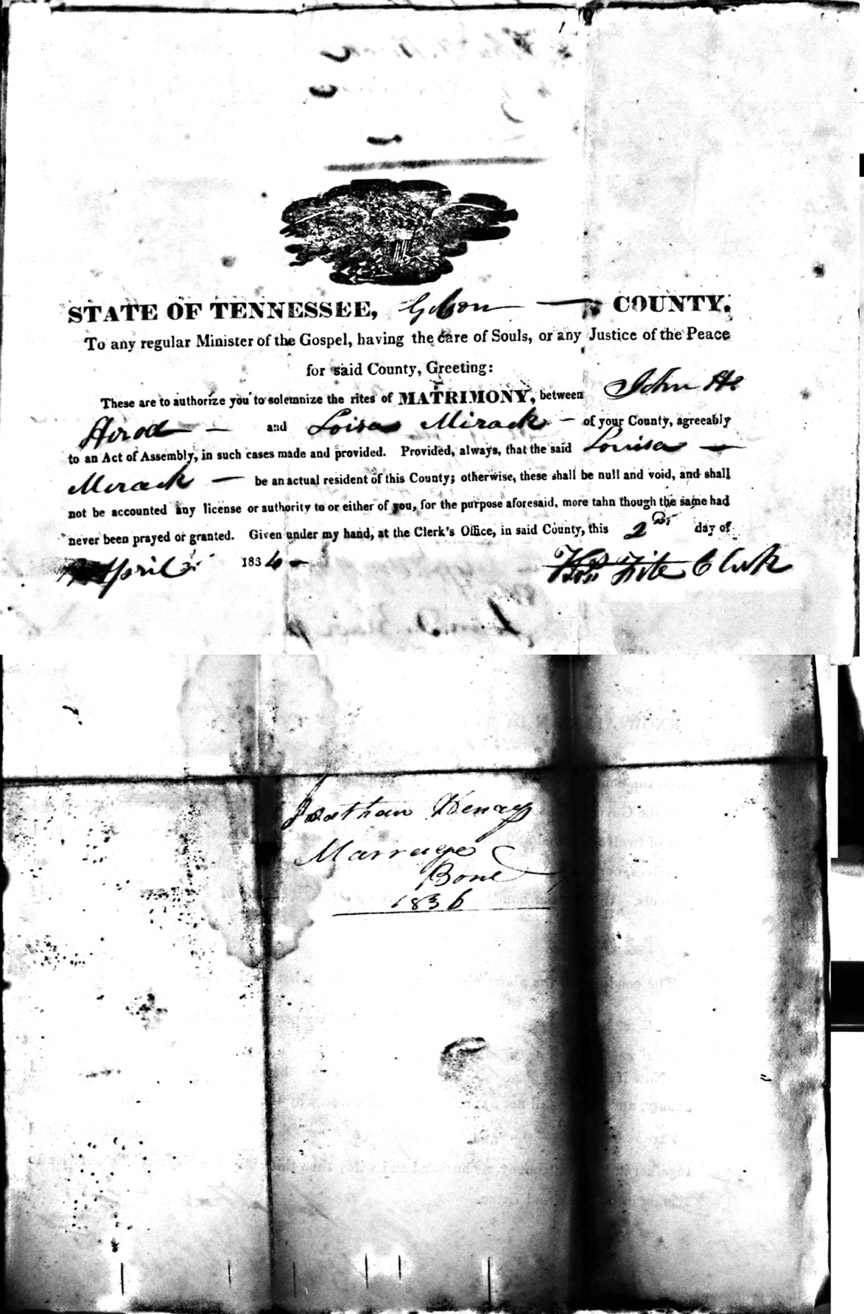 STATE OF TENNESSEE, Gibson COUNTY.
To any regular Minister of the Gospel, having the care of Souls, or any Justice of the Peace
for said County, Greeting:
These are to authorize you to solemnize the rites of MATRIMONY, between John
Herod — and Loisa Mirack — of your County, agreeably
to an Act of Assembly, in such cases made and provided. Provided, always, that the said Louisa —
Mirack — be an actual resident of this County; otherwise, these shall be null and void, and shall
not be accounted any license or authority to or either of you, for the purpose aforesaid, more tahn though the same had
never been prayed or granted. Given under my hand, at the Clerk's Office, in said County, this 2nd day of
April 183 Fite Clerk
Jonathan Henry
Marrage
Bond
1836